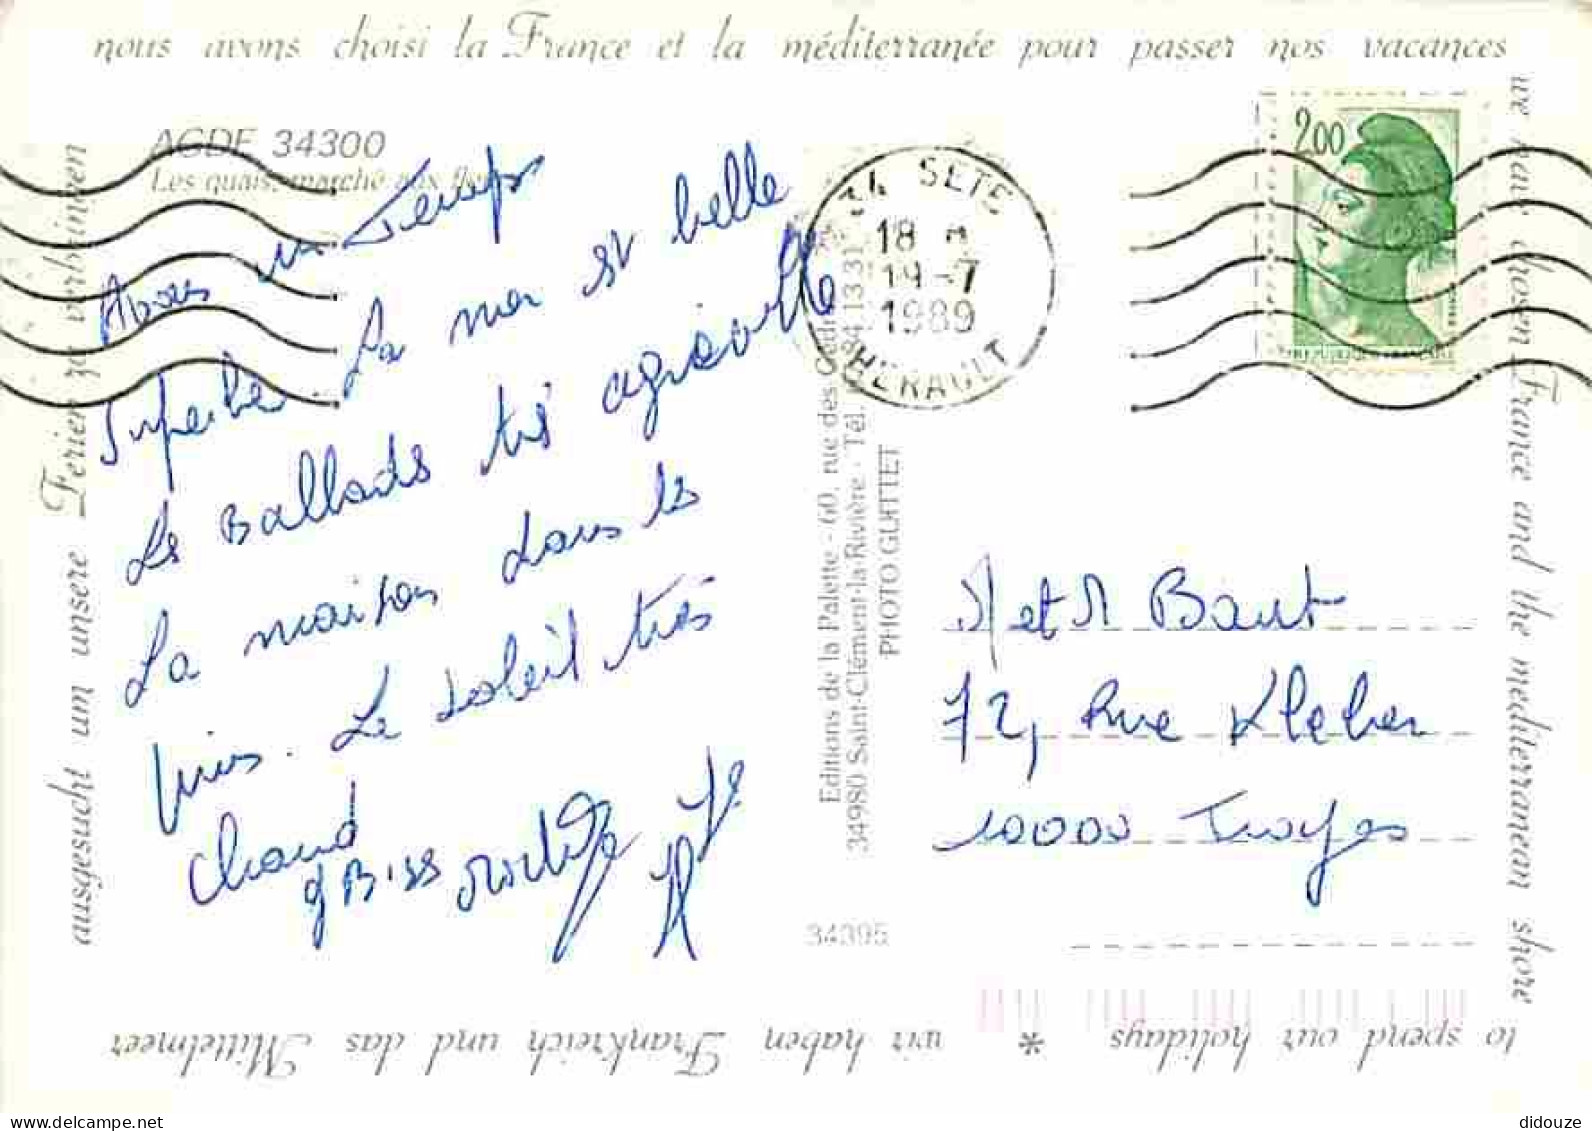 nous avons choisi la France et la méditerranée pour passer nos vacances
we have chosen France and the mediterranean shore
to spend our holidays * wir haben Frankreich und das Mittelmeer
ausgesucht um unsere Ferien zu verbringen
AGDE 34300
Les quais, marché aux
Avons un Temps
Superbe. La mer est belle
Les Ballads très agréable
La maison dans les
pins. Le soleil très
chaud
gBiss
34 SETE
18 H
19-7
1989
HERAULT
2.00
REPUBLIQUE FRANCAISE
Editions de la Palette - 60, rue des
34980 Saint-Clément-la-Rivière - Tél.
PHOTO GUITTET
M et M Baut
72, Rue Kleber
10000 Troyes
34395
delcampe.net
didouze